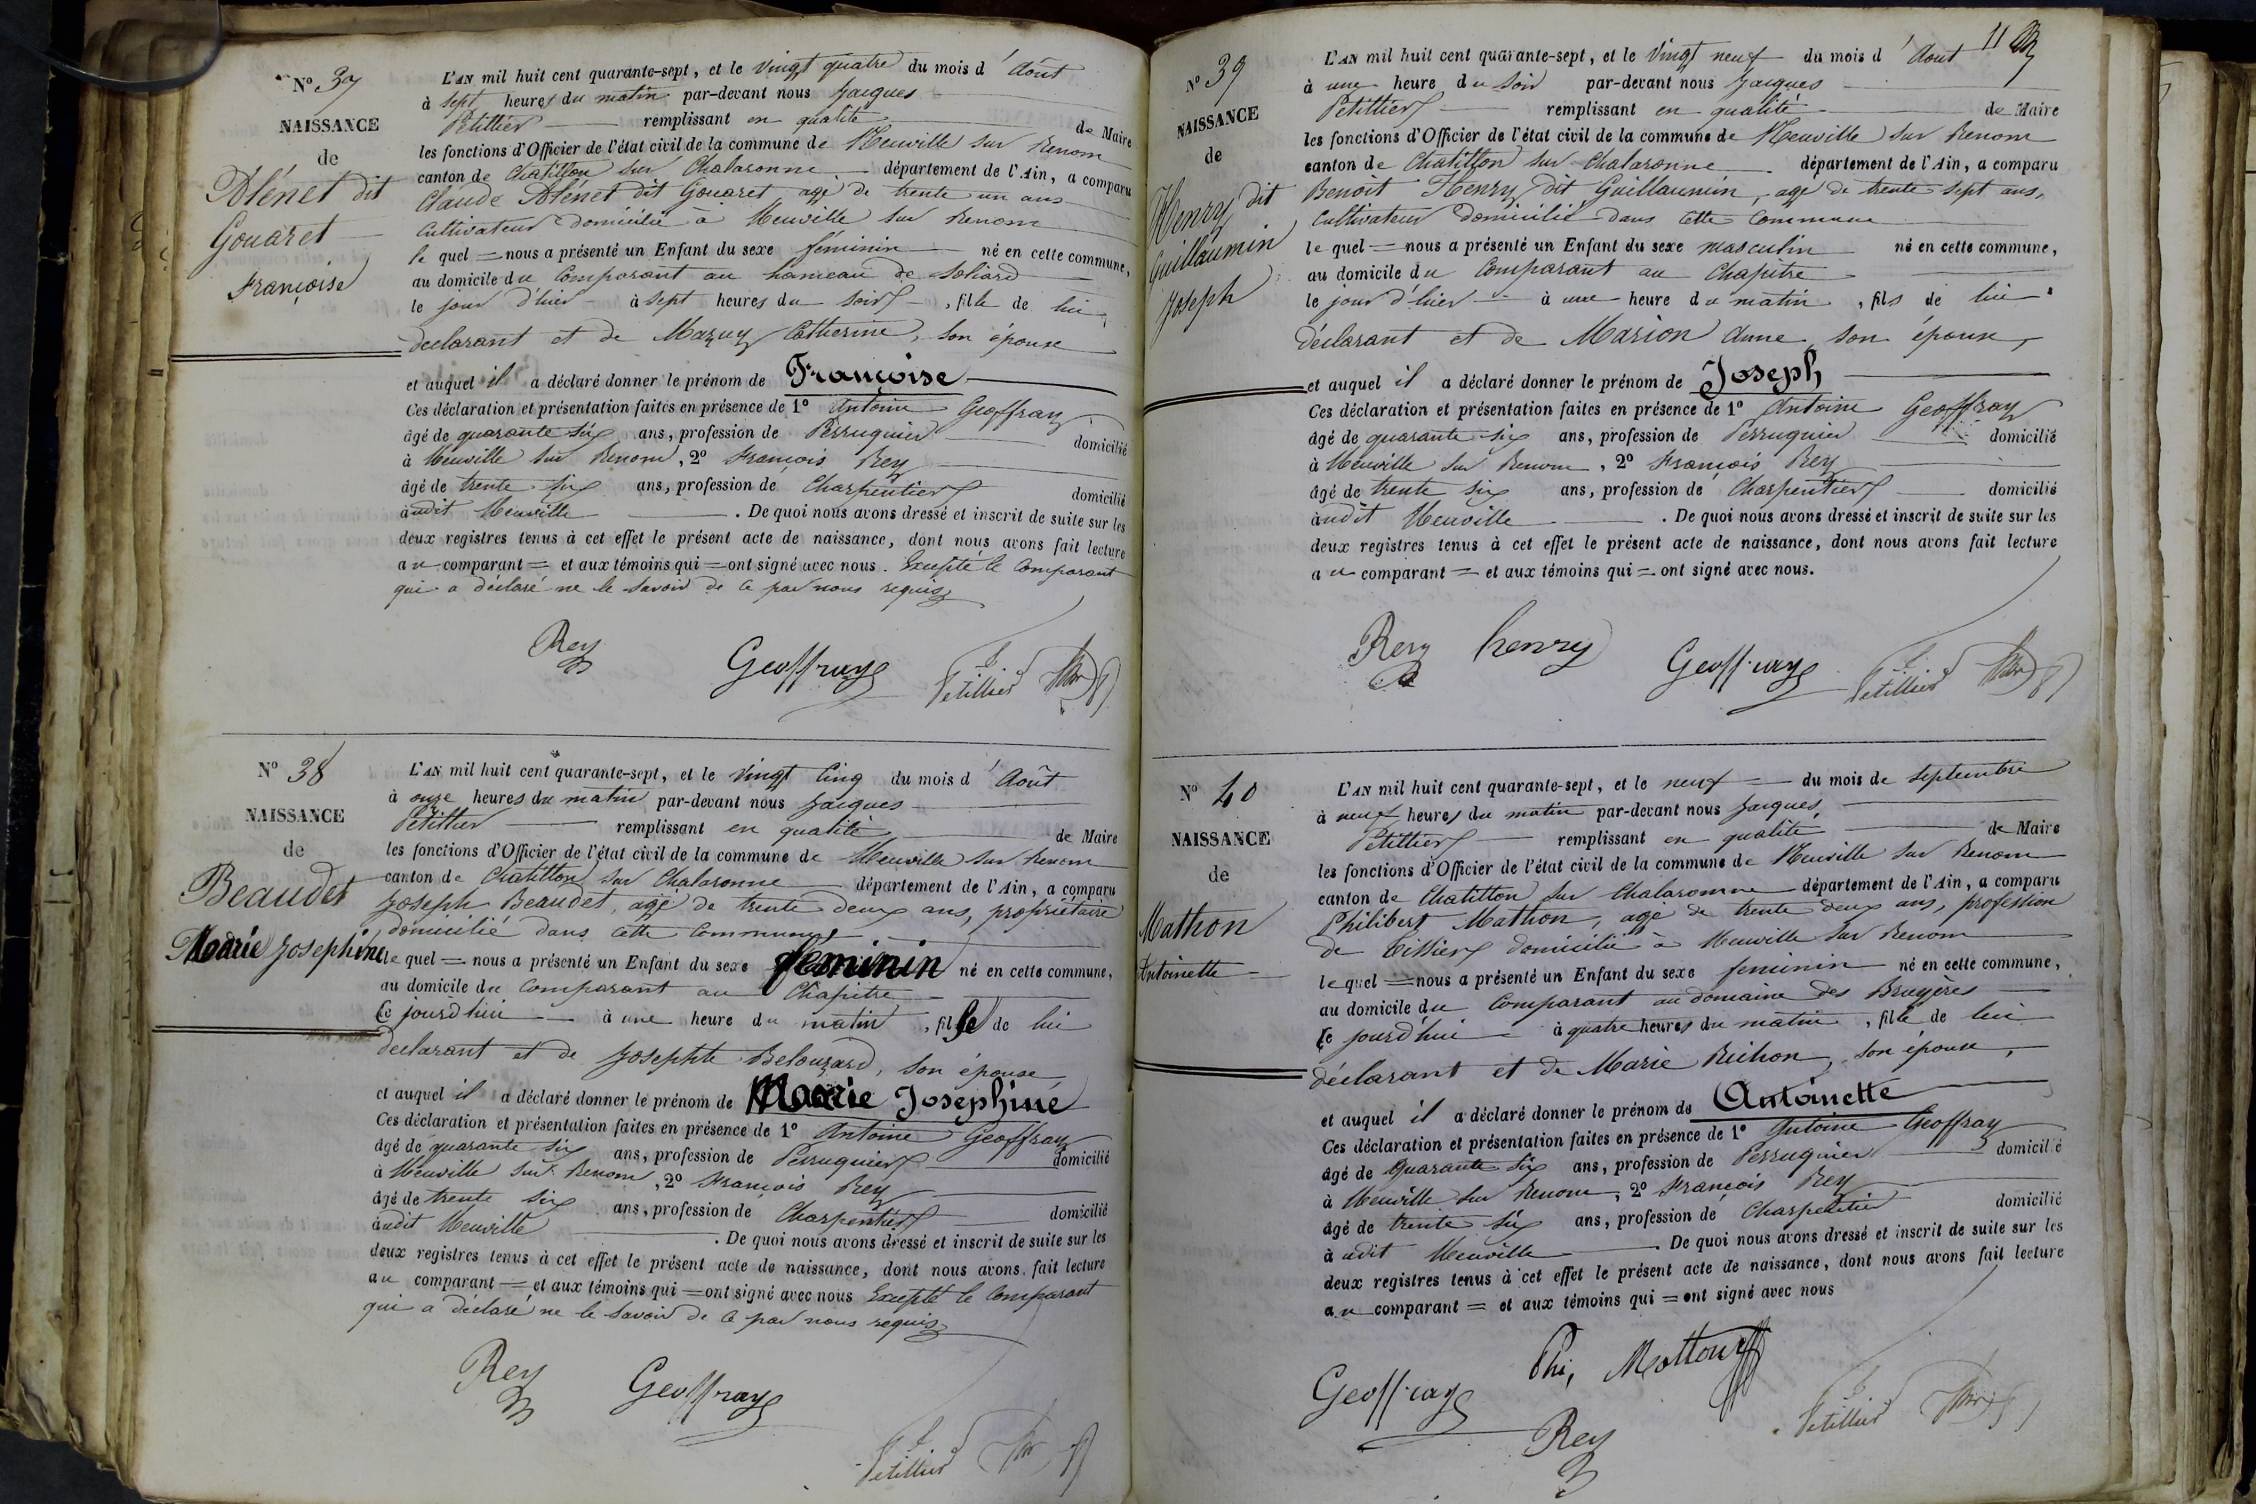 N° 37
NAISSANCE
de
Blénet dit
Gouaret
Françoise
L'AN mil huit cent quarante-sept, et le vingt quatre du mois d'Août
à sept heures du matin par-devant nous Jacques
Petillier remplissant en qualité de Maire
les fonctions d'Officier de l'état civil de la commune de Neuville sur Renom
canton de Chatillon sur Chalaronne département de l'Ain, a comparu
Claude Blénet dit Gouaret agé de trente un ans
cultivateur domicilié à Neuville sur Renom
le quel = nous a présenté un Enfant du sexe féminin né en cette commune,
au domicile du comparant au hameau de Soliard
le jour d'hier à sept heures du soir, fille de lui
déclarant et de Mazuy Catherine, son épouse
et auquel il a déclaré donner le prénom de Françoise
Ces déclaration et présentation faites en présence de 1° Antoine Geoffray
âgé de quarante six ans, profession de Perruquier domicilié
à Neuville sur Renom, 2° François Rey
âgé de trente six ans, profession de Charpentier domicilié
audit Neuville. De quoi nous avons dressé et inscrit de suite sur les
deux registres tenus à cet effet le présent acte de naissance, dont nous avons fait lecture
au comparant = et aux témoins qui = ont signé avec nous. Excepté le comparant
qui a déclaré ne le savoir de ce par nous requis
Rey Geoffray Petillier
N° 38
NAISSANCE
de
Beaudet
Marie Josephine
L'AN mil huit cent quarante-sept, et le vingt cinq du mois d'Août
à onze heures du matin par-devant nous Jacques
Petillier remplissant en qualité de Maire
les fonctions d'Officier de l'état civil de la commune de Neuville sur Renom
canton de Chatillon sur Chalaronne département de l'Ain, a comparu
Joseph Beaudet, agé de trente deux ans, propriétaire
domicilié dans cette commune
le quel = nous a présenté un Enfant du sexe feminin né en cette commune,
au domicile du comparant au Chapitre
Ce jourd'hui à une heure du matin, fille de lui
déclarant et de Josephte Belouzard, son épouse
et auquel il a déclaré donner le prénom de Marie Josephine
Ces déclaration et présentation faites en présence de 1° Antoine Geoffray
âgé de quarante six ans, profession de Perruquier domicilié
à Neuville sur Renom, 2° François Rey
âgé de trente six ans, profession de Charpentier domicilié
audit Neuville. De quoi nous avons dressé et inscrit de suite sur les
deux registres tenus à cet effet le présent acte de naissance, dont nous avons fait lecture
au comparant = et aux témoins qui = ont signé avec nous Excepté le comparant
qui a déclaré ne le savoir de ce par nous requis
Rey Geoffray
Petillier
11
N° 39
NAISSANCE
de
Henry dit
Guillaumin
Joseph
L'AN mil huit cent quarante-sept, et le vingt neuf du mois d'Aout
à une heure du soir par-devant nous Jacques
Petillier remplissant en qualité de Maire
les fonctions d'Officier de l'état civil de la commune de Neuville sur Renom
canton de Chatillon sur Chalaronne département de l'Ain, a comparu
Benoit Henry dit Guillaumin, agé de trente sept ans,
cultivateur domicilié dans cette commune
le quel = nous a présenté un Enfant du sexe masculin né en cette commune,
au domicile du comparant au Chapitre
le jour d'hier à une heure du matin, fils de lui
déclarant et de Marion Anne son épouse,
et auquel il a déclaré donner le prénom de Joseph
Ces déclaration et présentation faites en présence de 1° Antoine Geoffray
âgé de quarante six ans, profession de Perruquier domicilié
à Neuville sur Renom, 2° François Rey
âgé de trente six ans, profession de Charpentier domicilié
audit Neuville. De quoi nous avons dressé et inscrit de suite sur les
deux registres tenus à cet effet le présent acte de naissance, dont nous avons fait lecture
au comparant = et aux témoins qui = ont signé avec nous.
Rey henry Geoffray Petillier
N° 40
NAISSANCE
de
Mathon
Antoinette
L'AN mil huit cent quarante-sept, et le neuf du mois de septembre
à neuf heures du matin par-devant nous Jacques
Petillier remplissant en qualité de Maire
les fonctions d'Officier de l'état civil de la commune de Neuville sur Renom
canton de Chatillon sur Chalaronne département de l'Ain, a comparu
Philibert Mathon, agé de trente deux ans, profession
de Tissier domicilié à Neuville sur Renom
le quel = nous a présenté un Enfant du sexe feminin né en cette commune,
au domicile du comparant au domaine des Bruyères
Ce jourd'hui à quatre heures du matin, fille de lui
déclarant et de Marie Buihon, son épouse,
et auquel il a déclaré donner le prénom de Antoinette
Ces déclaration et présentation faites en présence de 1° Antoine Geoffray
âgé de quarante six ans, profession de Perruquier domicilié
à Neuville sur Renom, 2° François Rey
âgé de trente six ans, profession de Charpentier domicilié
à udit Neuville. De quoi nous avons dressé et inscrit de suite sur les
deux registres tenus à cet effet le présent acte de naissance, dont nous avons fait lecture
au comparant = et aux témoins qui = ont signé avec nous
Geoffray Phi, Motton
Rey Petillier